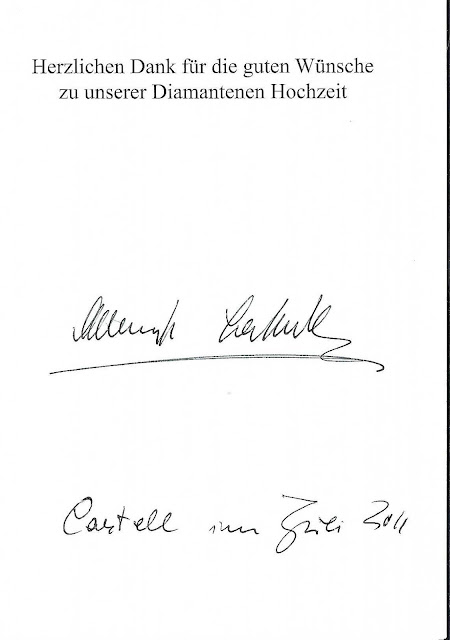 Herzlichen Dank für die guten Wünsche
zu unserer Diamantenen Hochzeit
Castell im Juli 2011